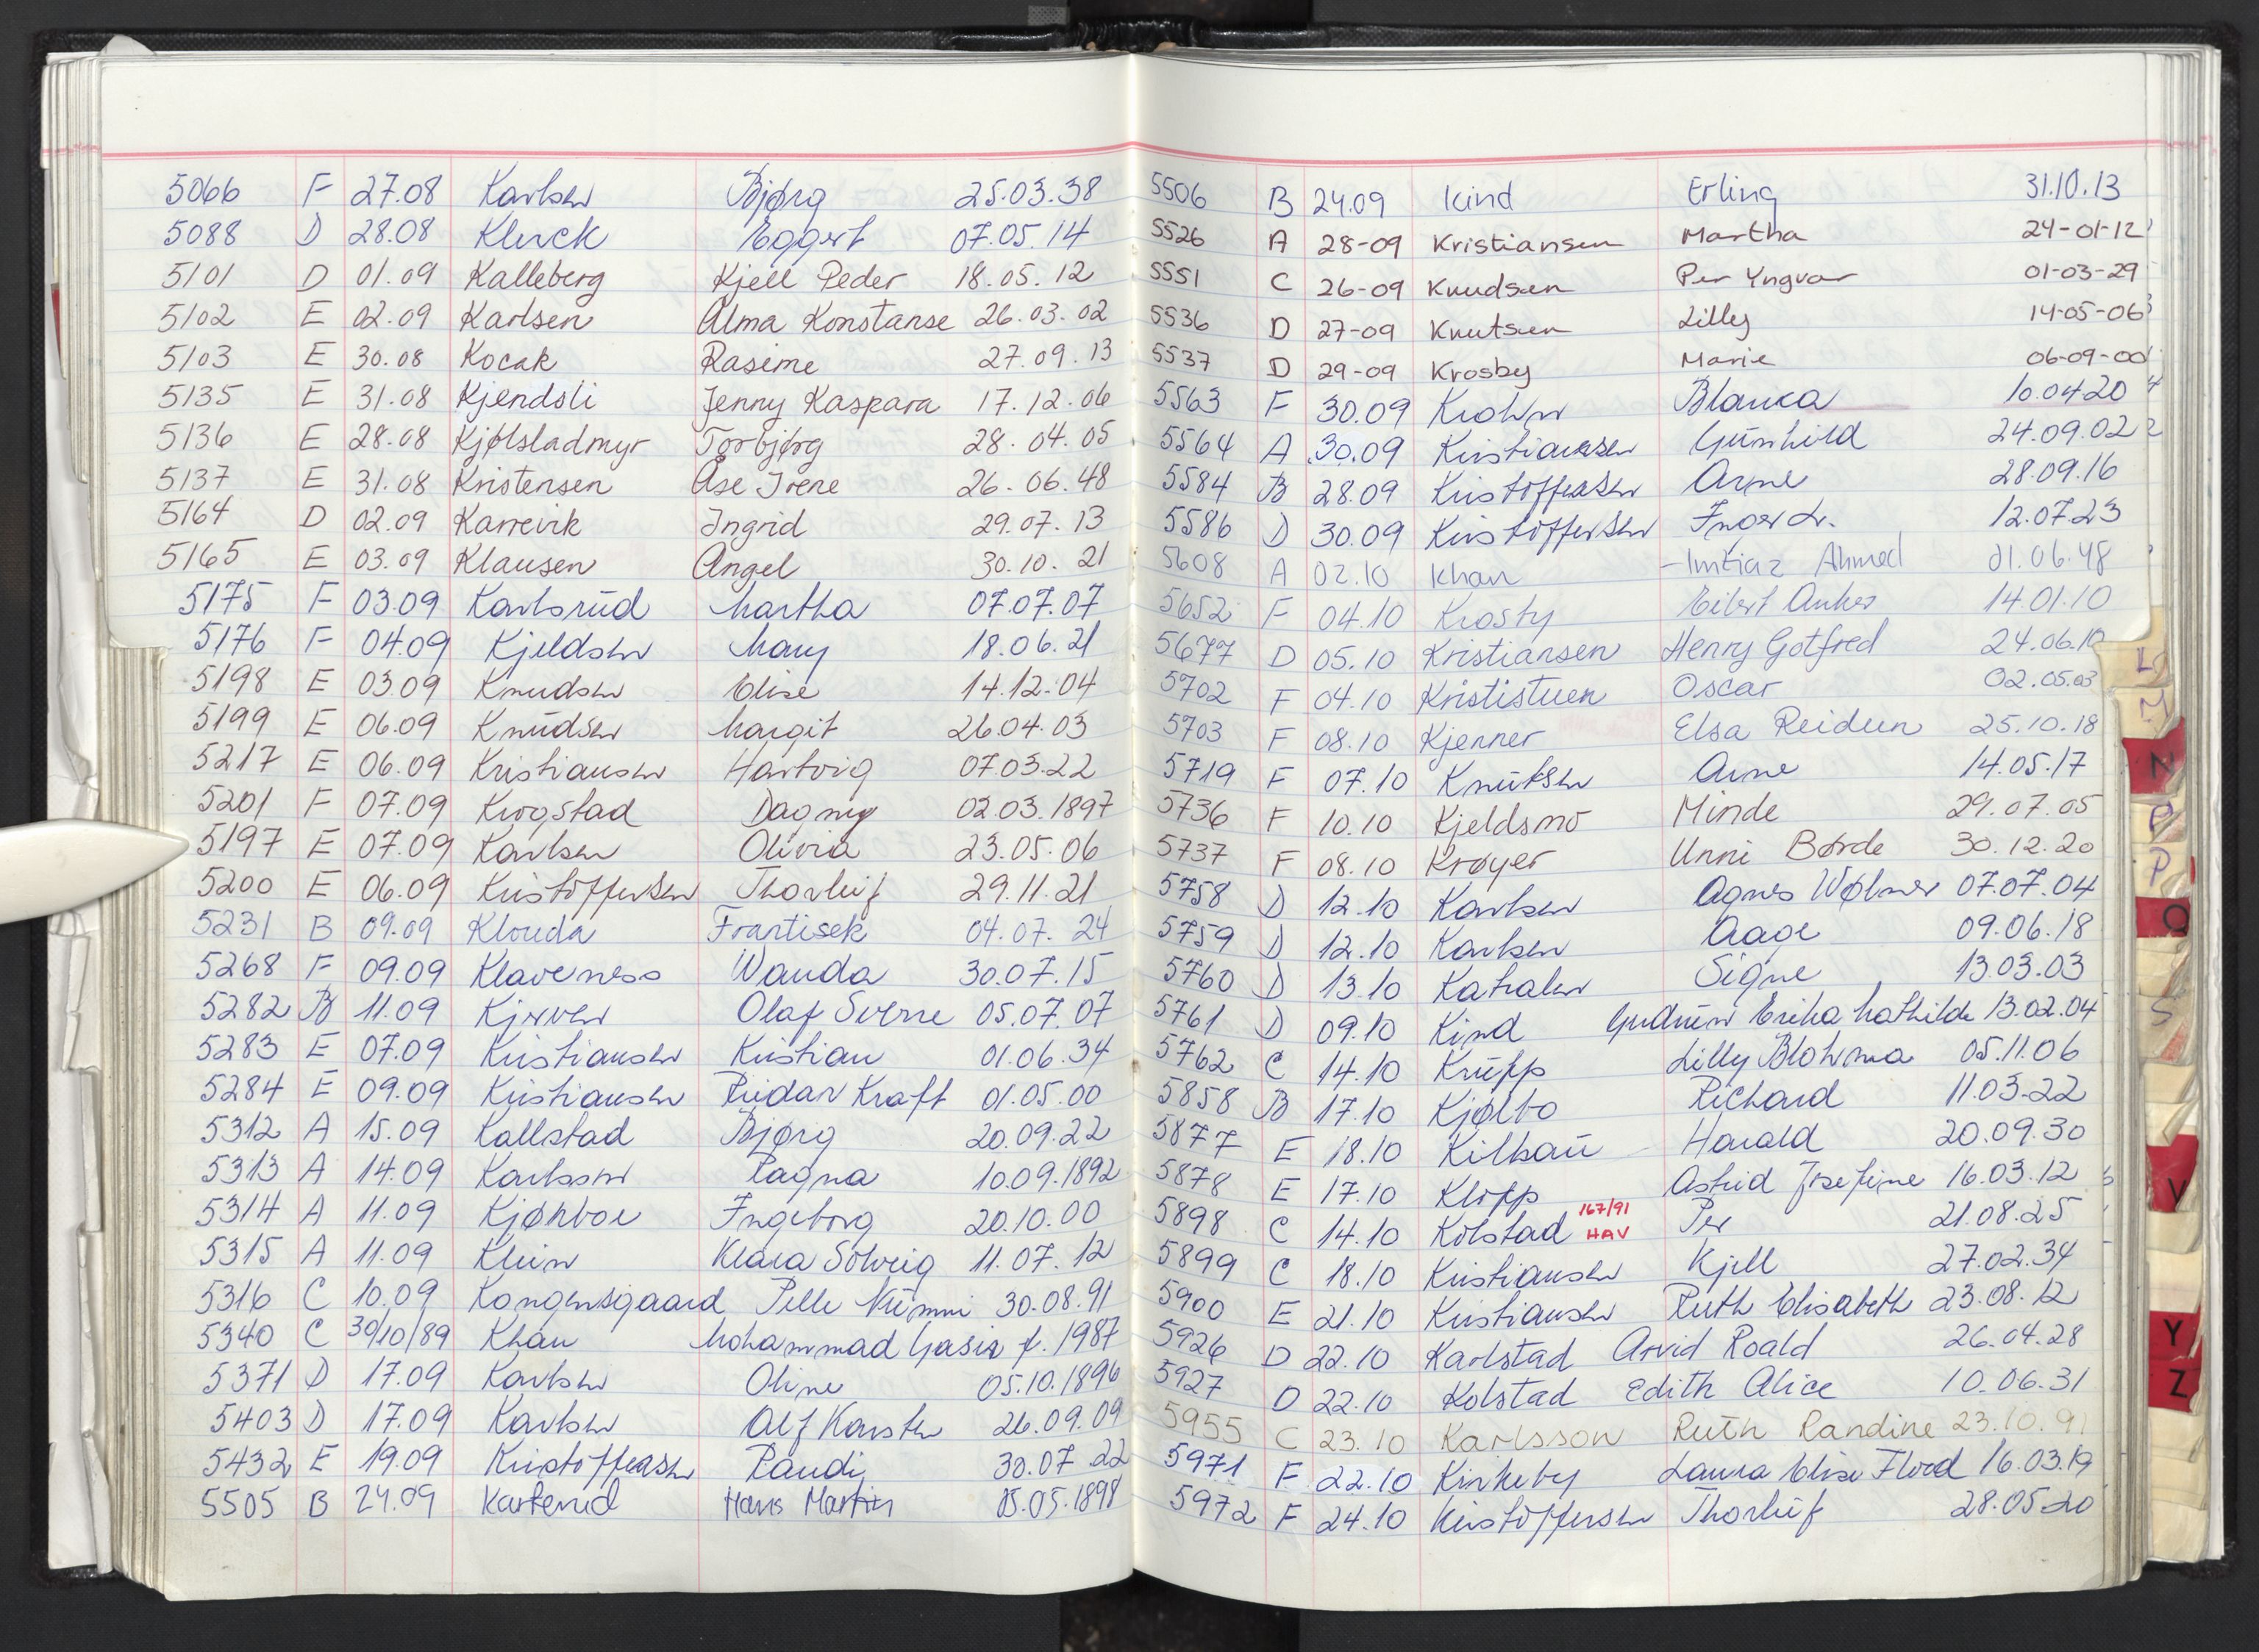 5066 F 27.08 Karlsen Bjørg 25.03.38
5088 D 28.08 Klerck Eggert 07.05.14
5101 D 01.09 Kalleberg Kjell Peder 18.05.12
5102 E 02.09 Karlsen Alma Konstanse 26.03.02
5103 E 30.08 Kocak Rasime 27.09.13
5135 E 31.08 Kjendsli Jenny Kaspara 17.12.06
5136 E 28.08 Kjølsladmyr Torbjørg 28.04.05
5137 E 31.08 Kristensen Åse Irene 26.06.48
5164 D 02.09 Karrevik Ingrid 29.07.13
5165 E 03.09 Klausen Angel 30.10.21
5175 F 03.09 Karlsrud Martha 07.07.07
5176 F 04.09 Kjeldsen Mary 18.06.21
5198 E 03.09 Knudsen Elise 14.12.04
5199 E 06.09 Knudsen Margit 26.04.03
5217 E 06.09 Kristiansen Hartvig 07.03.22
5201 F 07.09 Krogstad Dagny 02.03.1897
5197 E 07.09 Karlsen Olivia 23.05.06
5200 E 06.09 Kristoffersen Thorleif 29.11.21
5231 B 09.09 Klouda Frantisek 04.07.24
5268 F 09.09 Klaveness Wanda 30.07.15
5282 B 11.09 Kjerven Olaf Sverre 05.07.07
5283 E 07.09 Kristiansen Kristian 01.06.34
5284 E 09.09 Kristiansen Reidar Kraft 01.05.00
5312 A 15.09 Kallstad Bjørg 20.09.22
5313 A 14.09 Karlsson Ragna 10.09.1892
5314 A 11.09 Kjønboe Ingeborg 20.10.00
5315 A 11.09 Klein Klara Solveig 11.07.12
5316 C 10.09 Kongensgaard Pelle Nummi 30.08.91
5340 C 30/10/89 Khan Mohammad Yasin f. 1987
5371 D 17.09 Karlsen Oline 05.10.1896
5403 D 17.09 Karlsen Alf Karsten 26.09.09
5432 E 19.09 Kristoffersen Randi 30.07.22
5505 B 24.09 Karterud Hans Martin 05.05.1898
5506 B 24.09 Kind Erling 31.10.13
5526 A 28-09 Kristiansen Martha 24-01-12
5551 C 26-09 Knudsen Per Yngvar 01-03-29
5536 D 27-09 Knutsen Lilly 14-05-06
5537 D 29-09 Krosby Marie 06-09-00
5563 F 30.09 Krohn Blanca 10.04.20
5564 A 30.09 Kristiansen Gunhild 24.09.02
5584 B 28.09 Kristoffersen Arne 28.09.16
5586 D 30.09 Kristoffersen Inger L. 12.07.23
5608 A 02.10 Khan Imtiaz Ahmed 01.06.48
5652 F 04.10 Krosby Eilert Anker 14.01.10
5677 D 05.10 Kristiansen Henry Gotfred 24.06.10
5702 F 04.10 Krististuen Oscar 02.05.03
5703 F 08.10 Kjenner Elsa Reidun 25.10.18
5719 F 07.10 Knutsen Arne 14.05.17
5736 F 10.10 Kjeldsmo Minde 29.07.05
5737 F 08.10 Krøyer Unni Børde 30.12.20
5758 D 12.10 Karlsen Agnes Wølner 07.07.04
5759 D 12.10 Karlsen Aage 09.06.18
5760 D 13.10 Katralen Signe 13.03.03
5761 D 09.10 Kind Gudrun Erika Mathilde 13.02.04
5762 C 14.10 Krupp Lilly Blohma 05.11.06
5858 B 17.10 Kjølbo Richard 11.03.22
5877 E 18.10 Kilbau Harald 20.09.30
5878 E 17.10 Klopp Astrid Josefine 16.03.12
5898 C 14.10 Kolstad 167/91 HAV Per 21.08.25
5899 C 18.10 Kristiansen Kjell 27.02.34
5900 E 21.10 Kristiansen Ruth Elisabeth 23.08.12
5926 D 22.10 Karlstad Arvid Roald 26.04.28
5927 D 22.10 Kolstad Edith Alice 10.06.31
5955 C 23.10 Karlsson Ruth Randine 23.10.91
5971 F 22.10 Kirkeby Laura Elise Flood 16.03.19
5972 F 24.10 Kristoffersen Thorleif 28.05.20
L
N
O
P
Q
S
V
Y
Z